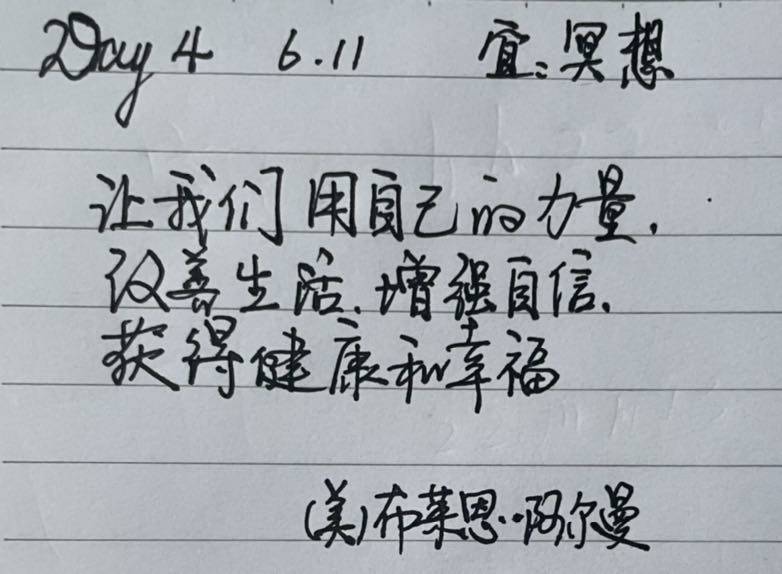 Day 4 6.11 宜:冥想
让我们用自己的力量,
改善生活,增强自信,
获得健康和幸福
(美)布莱恩··阿尔曼